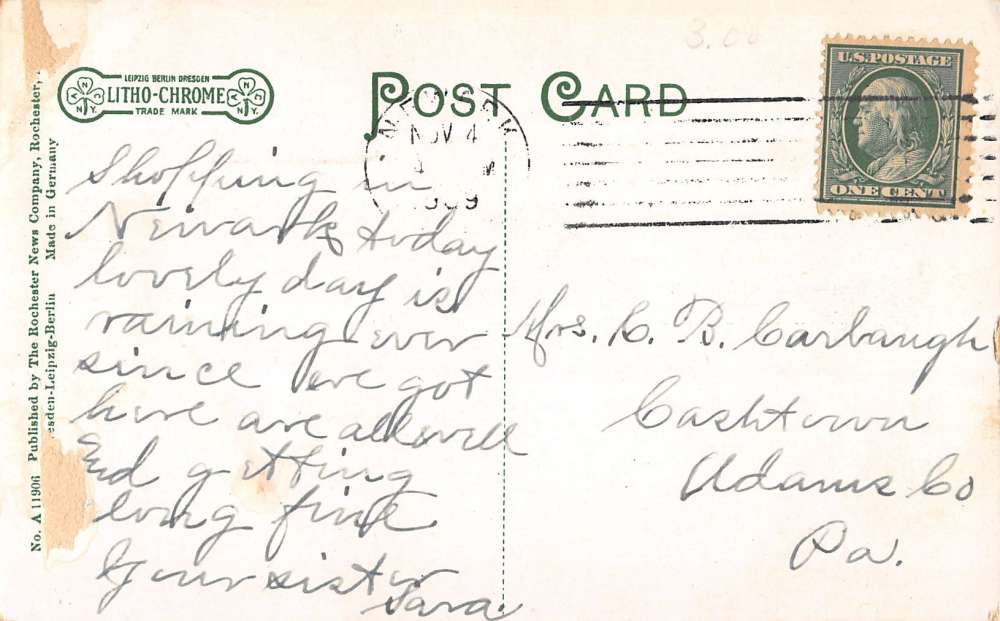 3.00
LEIPZIG BERLIN DRESDEN
LITHO-CHROME
TRADE MARK
N.Y.
N.Y.
POST CARD
NOV 4
1909
U.S. POSTAGE
ONE CENT
Shopping in
Newark today
lovely day is
raining ever
since we got
here are all well
Ed getting
long fine
Your sister
Sara.
Mrs. C. B. Carbaugh
Cashtown
Adams Co
Pa.
No. A 11906 Published by The Rochester News Company, Rochester,
esden-Leipzig-Berlin Made in Germany